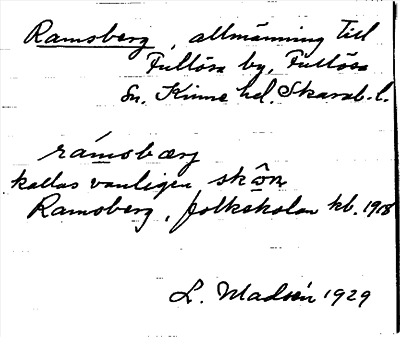 Ramsberg, allmänning till
Fullösa by, Fullösa
sn. Kinne hd. Skarab. l.
ramsbærg
kallas vanligen skōn
Ramsberg, folkskolan kb. 1918
L. Madsén 1929